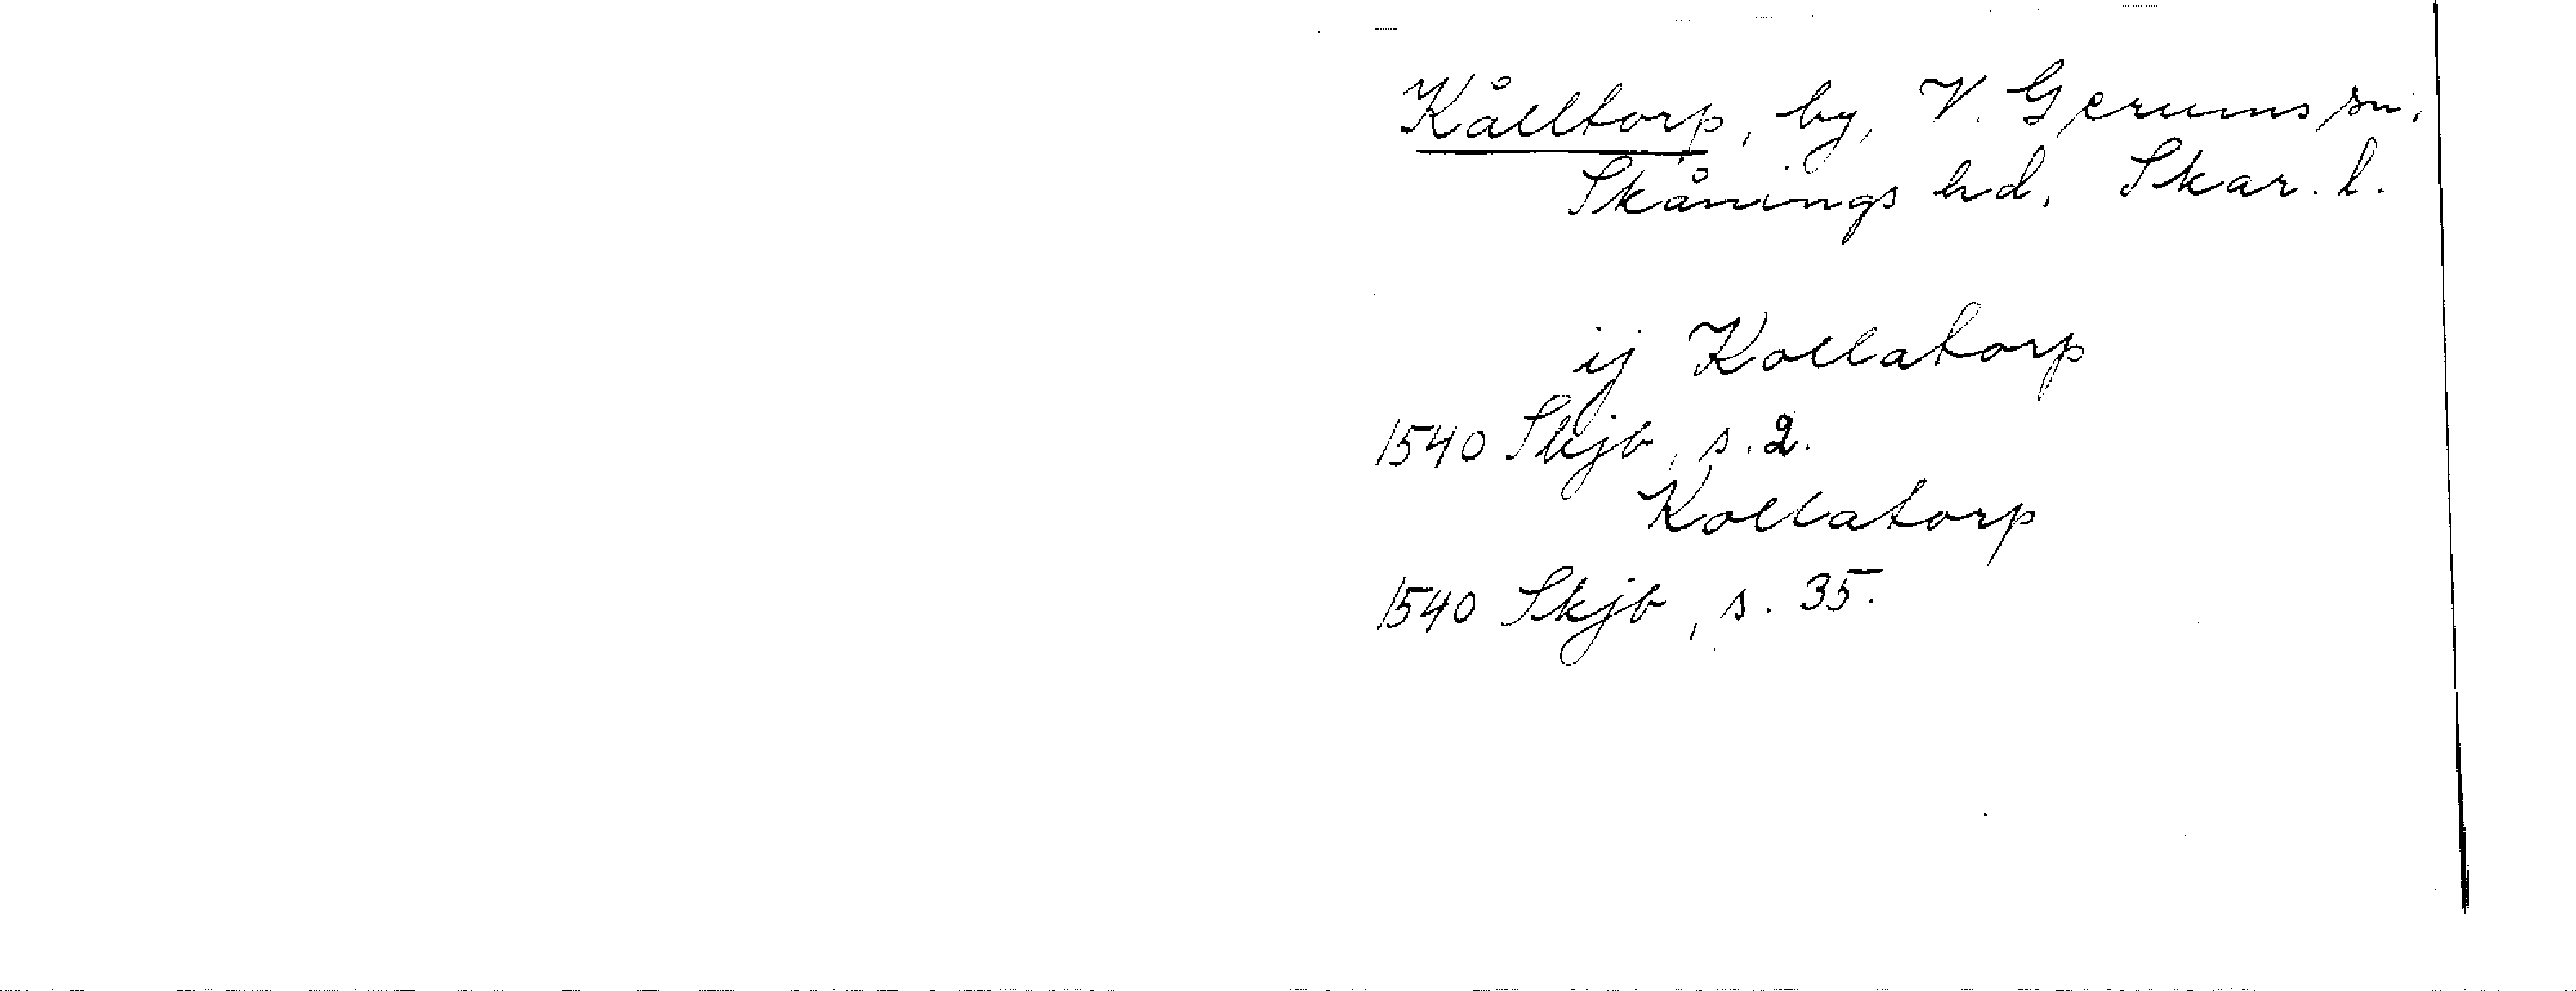 Kålltorp, by, V. Gerums sn,
Skånings hd, Skar. l.
ij Kollatorp
1540 Skjb, s. 2.
Kollatorp
1540 Skjb, s. 35.